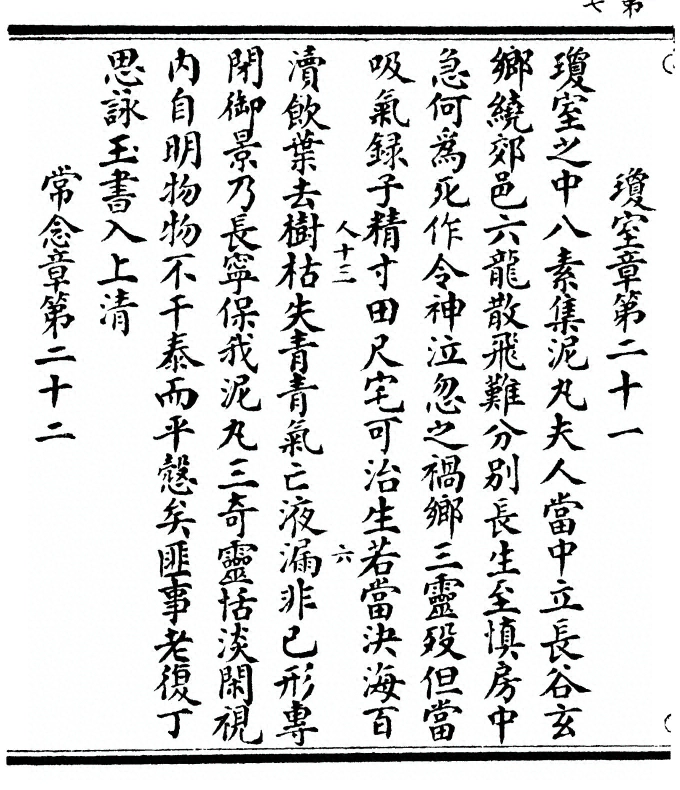 瓊室章第二十一
瓊室之中八素集泥丸夫人當中立長谷玄
鄉繞郊邑六龍散飛難分別長生至慎房中
急何爲死作令神泣忽之禍鄉三靈歿但當
吸氣録子精寸田尺宅可治生若當決海百
人十三 六
瀆飲葉去樹枯失青青氣亡液漏非己形專
閉御景乃長寧保我泥丸三奇靈恬淡閑視
內自明物物不干泰而平愨矣匪事老復丁
思詠玉書入上清
常念章第二十二